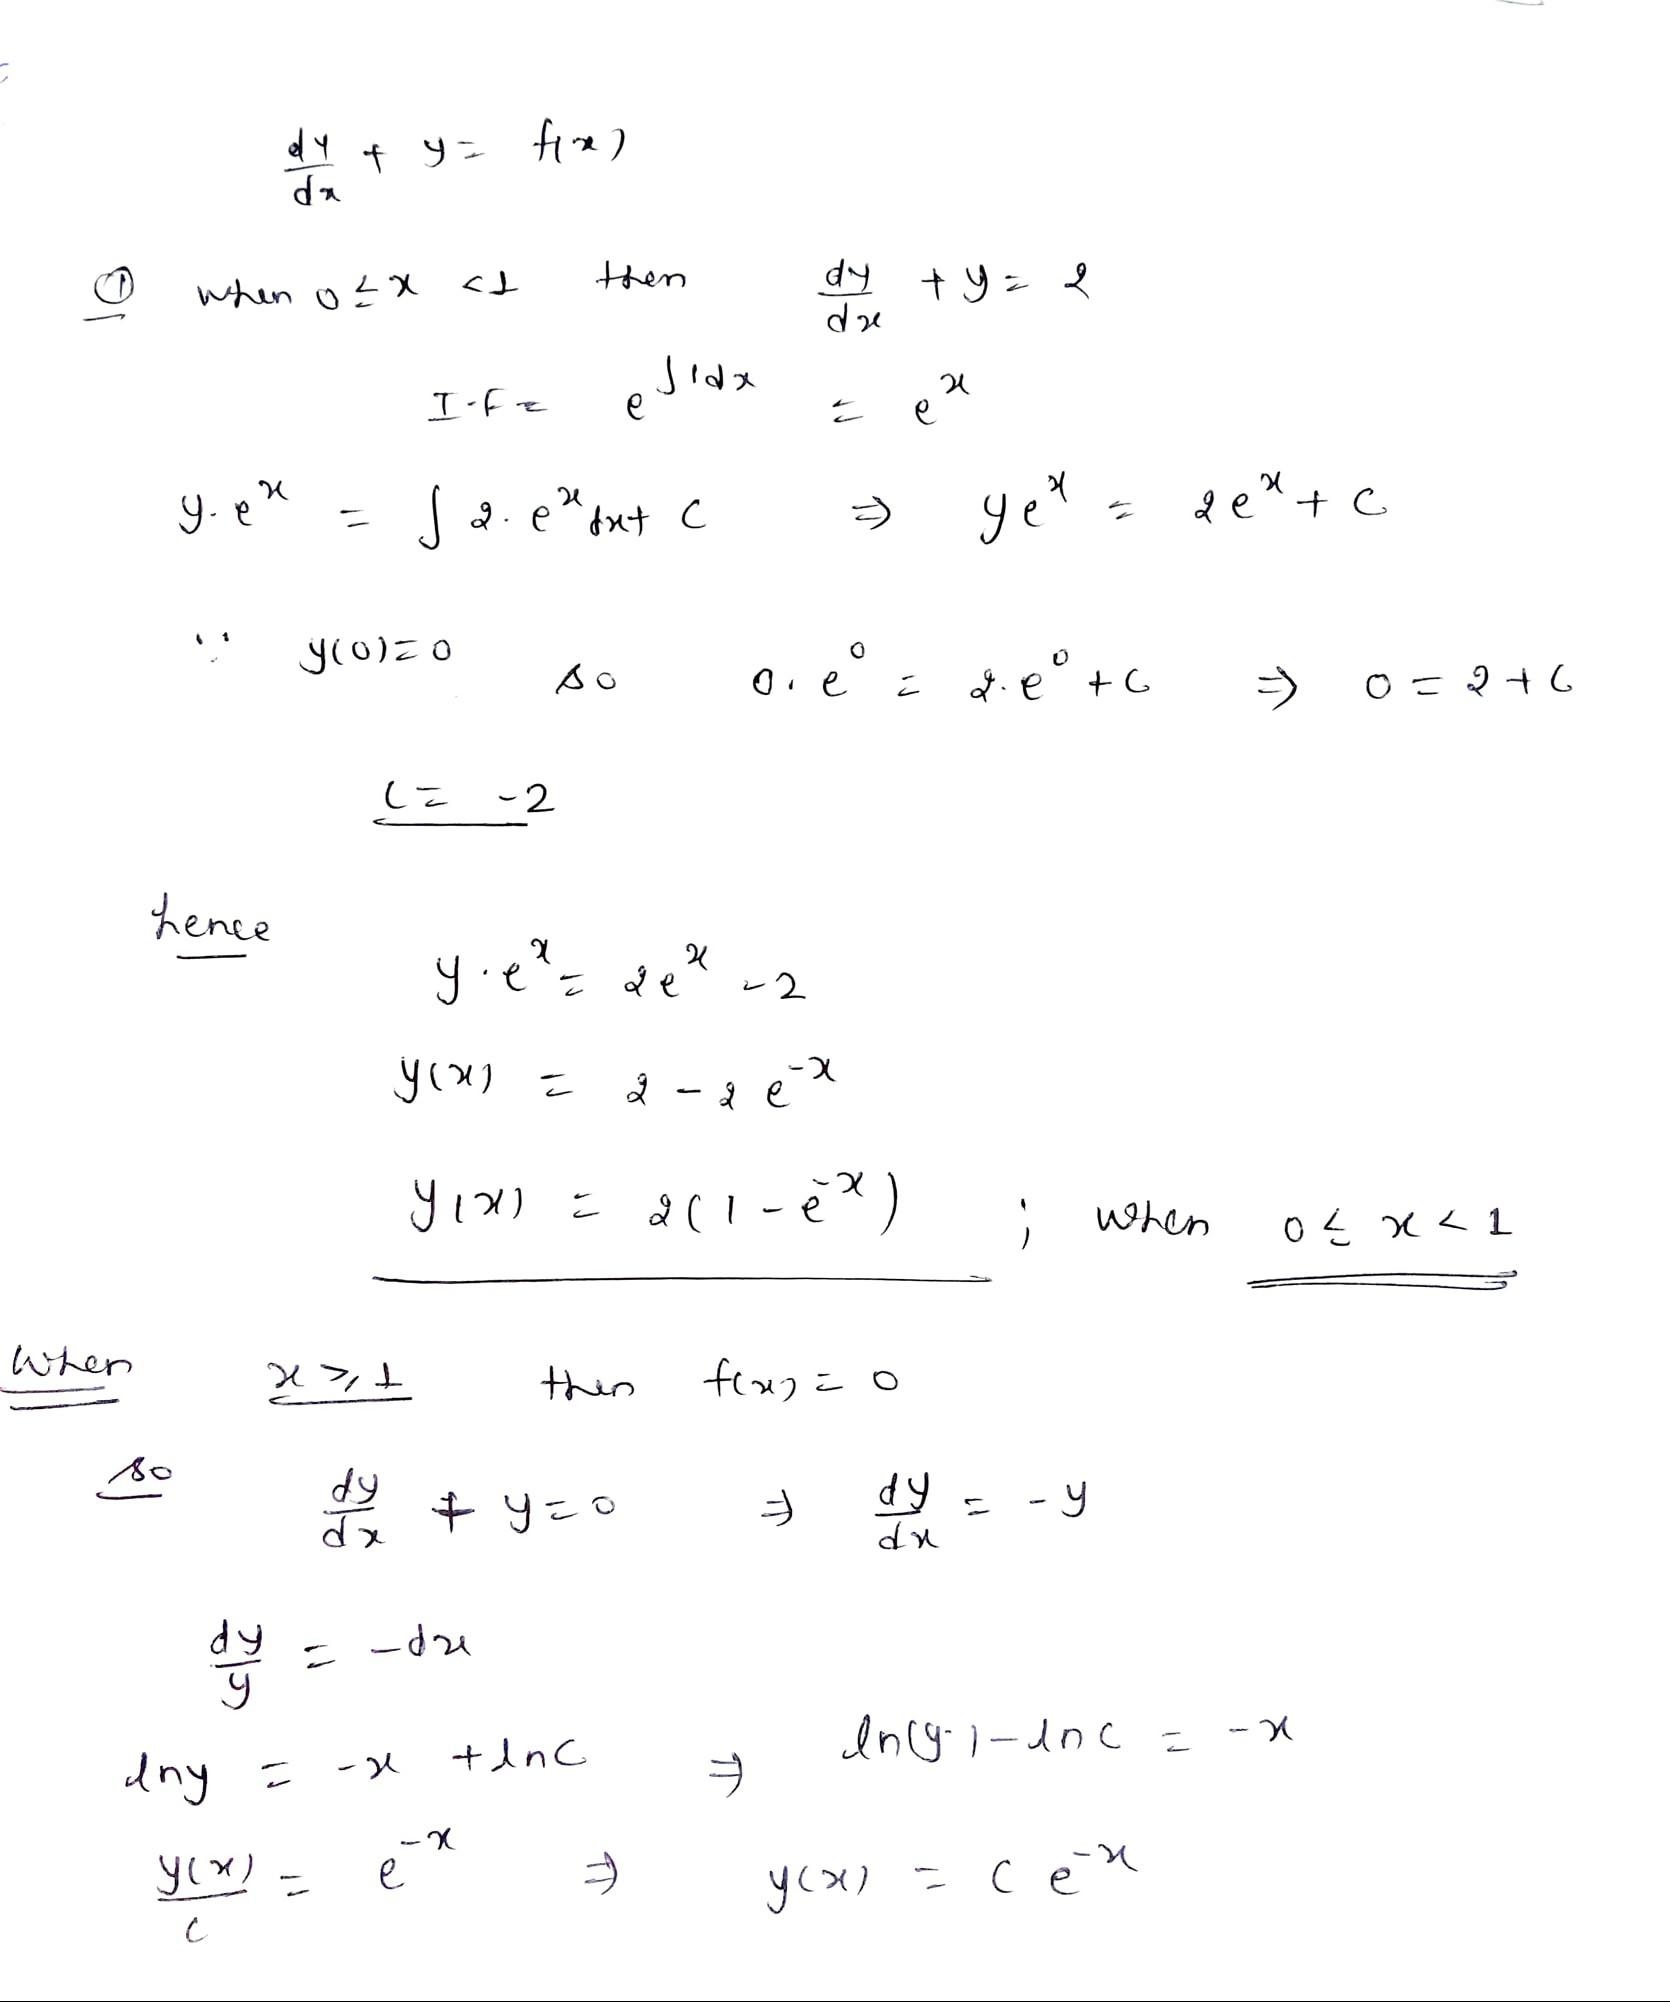 dy/dx + y = f(x)
① when 0 ≤ x < 1 then dy/dx + y = 2
I.F = e^∫1dx = e^x
y.e^x = ∫ 2.e^x dx + C ⇒ ye^x = 2e^x + C
∵ y(0) = 0 so 0.e^0 = 2.e^0 + C ⇒ 0 = 2 + C
C = -2
hence
y.e^x = 2e^x - 2
y(x) = 2 - 2e^-x
y(x) = 2(1 - e^-x) ; when 0 ≤ x < 1
When x ≥ 1 then f(x) = 0
so dy/dx + y = 0 ⇒ dy/dx = -y
dy/y = -dx
lny = -x + lnC ⇒ ln(y) - lnC = -x
y(x)/C = e^-x ⇒ y(x) = C e^-x